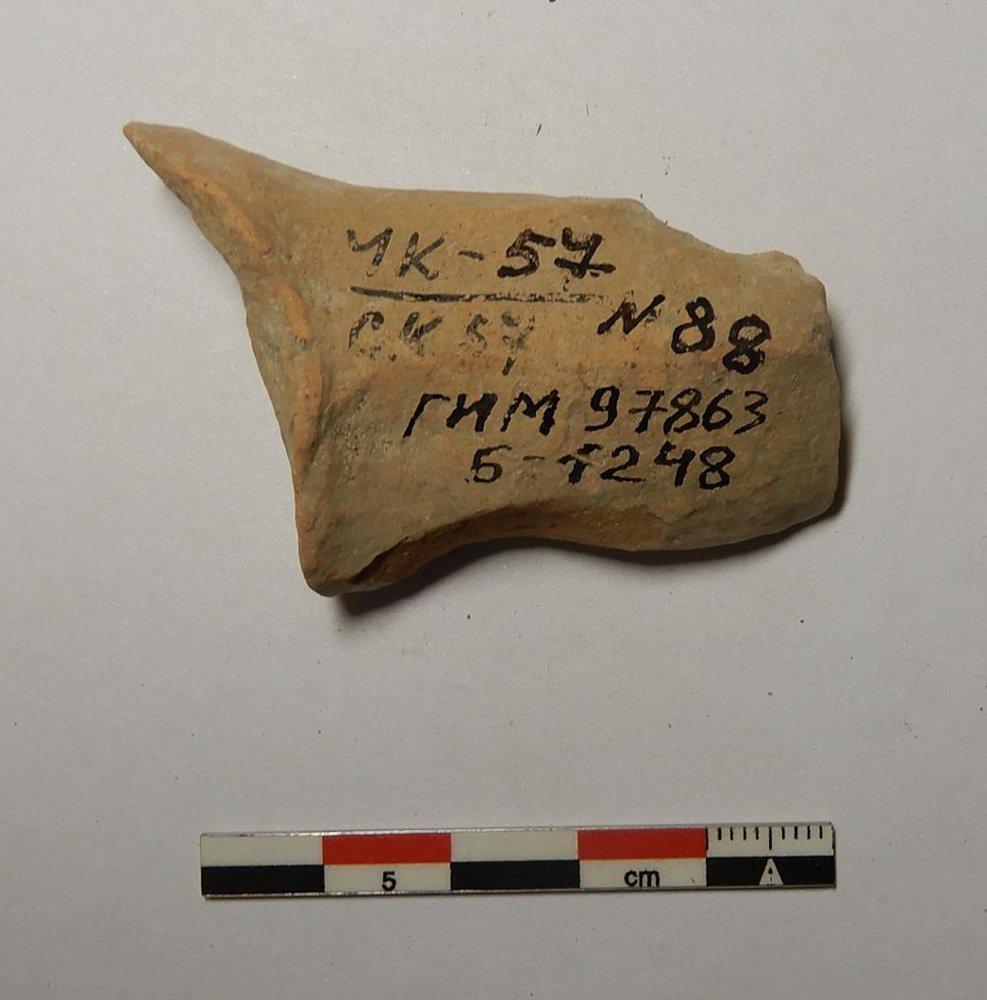 ЧК-57
СК 57 N 88
ГИМ 97863
Б-1248
5 cm